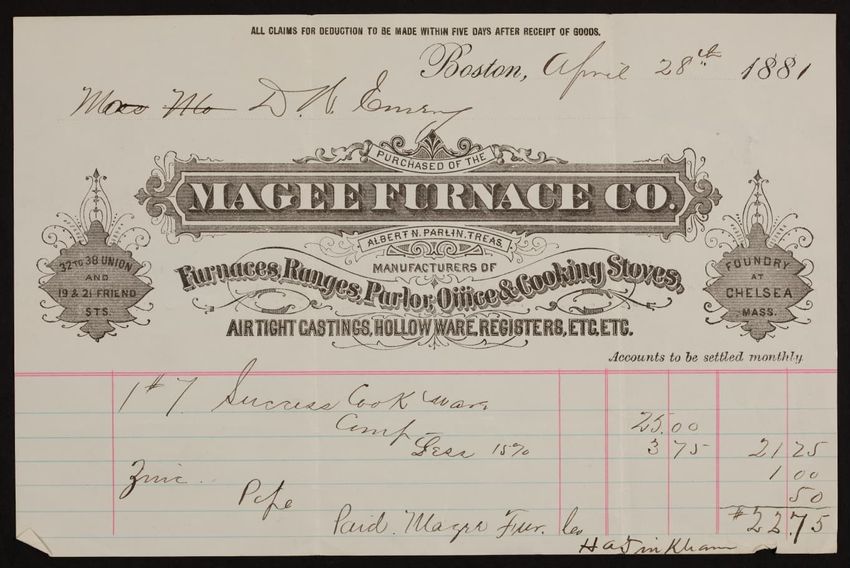 ALL CLAIMS FOR DEDUCTION TO BE MADE WITHIN FIVE DAYS AFTER RECEIPT OF GOODS.
Boston, April 28th 1881
D. W. Emery
PURCHASED OF THE
MAGEE FURNACE CO.
ALBERT N. PARLIN, TREAS.
32 TO 38 UNION
AND
19 & 21 FRIEND
STS.
MANUFACTURERS OF
Furnaces, Ranges, Parlor, Office & Cooking Stoves,
AIR TIGHT CASTINGS, HOLLOW WARE, REGISTERS, ETC. ETC.
FOUNDRY
AT
CHELSEA
MASS.
Accounts to be settled monthly.
1 # 7 Success Cook
25.00
Comp Less 15% 3 75 21 25
Zinc. 1 00
Pipe 50
Paid. Magee Fur. Co #22.75